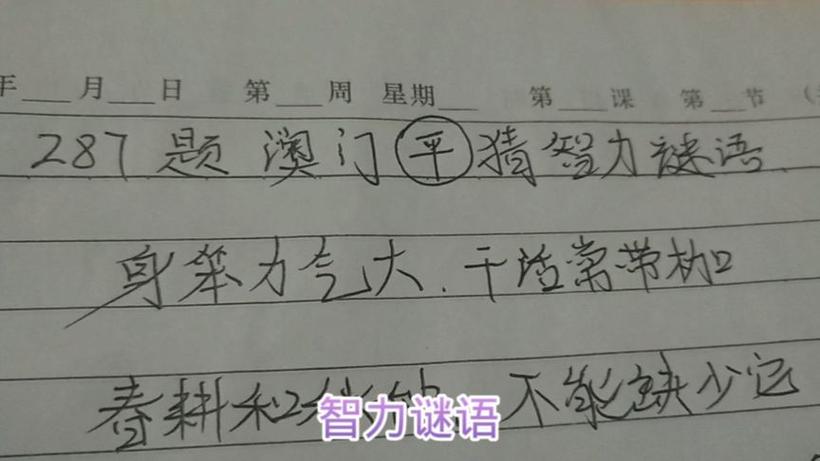 年___月___日 第___周 星期___ 第___课 第___节 (
287题 澳门㊣平猜智力谜语
身笨力气大.干活常带枷
春耕和 不能缺少它
智力谜语